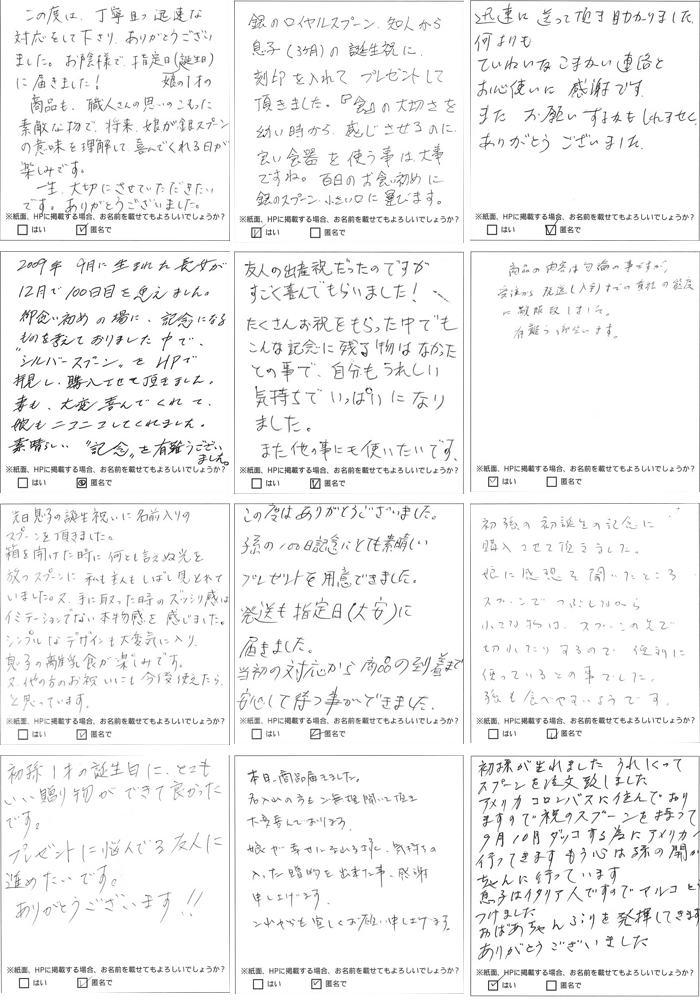 この度は、丁寧且つ迅速な
対応をして下さり、ありがとうござい
ました。お陰様で、指定日(誕生日)
に届きました! 娘の1才の
商品も、職人さんの思いのこもった
素敵な物で、将来、娘が銀スプーン
の意味を理解して、喜んでくれる日が
楽しみです。
一生、大切にさせていただきたい
です。ありがとうございました。
※紙面、HPに掲載する場合、お名前を載せてもよろしいでしょうか?
はい 匿名で
銀のロイヤルスプーン、知人から
息子(3ヶ月)の誕生祝に、
刻印を入れてプレゼントして
頂きました。『食』の大切さを
幼い時から、感じさせるのに、
良い食器を使う事は大事
ですね。百日のお食い初めに
銀のスプーン、小さい口に運びます。
※紙面、HPに掲載する場合、お名前を載せてもよろしいでしょうか?
はい 匿名で
迅速に送って頂き助かりました
何よりも
ていねいなこまかい連絡と
お心使いに感謝です。
また お願いするかもしれませんと、
ありがとうございました。
※紙面、HPに掲載する場合、お名前を載せてもよろしいでしょうか?
はい 匿名で
2009年 9月に生まれた長女が
12月で100日目を迎えました。
御食い初めの場に、記念になる
ものを考えておりました中で、
"シルバースプーン"をHPで
拝見し、購入させて頂きました。
妻も、大変喜んでくれて、
娘もニコニコしてくれました。
素晴らしい"記念"を有難うござい
ました。
※紙面、HPに掲載する場合、お名前を載せてもよろしいでしょうか?
はい 匿名で
友人の出産祝だったのですが
すごく喜んでもらいました!
たくさんお祝をもらった中でも
こんな記念に残る物はなかった
との事で、自分もうれしい
気持ちでいっぱいになり
ました。
また他の事にも使いたいです。
※紙面、HPに掲載する場合、お名前を載せてもよろしいでしょうか?
はい 匿名で
商品の内容は勿論の事ですが、
受注から発送(入手)までの貴社の
に しました。
有難う御座います。
※紙面、HPに掲載する場合、お名前を載せてもよろしいでしょうか?
はい 匿名で
先日息子の誕生祝いに名前入りの
スプーンを頂きました。
箱を開けた時に何とも言えぬ光を
放つスプーンに私も主人もしばし見とれて
いました。又、手に取った時のズッシリ感は
イミテーションでない本物感を感じました。
シンプルなデザインも大変気に入り、
息子の離乳食が楽しみです。
又、他の方のお祝いにも今後使えたら、
と思っています。
※紙面、HPに掲載する場合、お名前を載せてもよろしいでしょうか?
はい 匿名で
この度はありがとうございました。
孫の100日記念にとても素晴しい
プレゼントを用意できました。
発送も指定日(大安)に
届きました。
当初の対応から商品の到着まで
安心して待つ事ができました。
※紙面、HPに掲載する場合、お名前を載せてもよろしいでしょうか?
はい 匿名で
初孫の初誕生の記念に
購入させて頂きました。
娘に感想を聞いたところ
スプーンでつぶしながら
小さな物は、スプーンの先で
切れたりするので便利に
使っているとの事でした。
孫も食べやすいようです。
※紙面、HPに掲載する場合、お名前を載せてもよろしいでしょうか?
はい 匿名で
初孫1才の誕生日に、とても
いい贈り物ができて良かった
です。
プレゼントに悩んでる友人に
進めたいです。
ありがとうございます!!
※紙面、HPに掲載する場合、お名前を載せてもよろしいでしょうか?
はい 匿名で
本日、商品届きました。
名入れの方もご無理聞いて頂き
大変喜んでおります。
娘が幸せになれる様に、気持ちの
入った贈物を出来た事、感謝
申し上げます。
これからも宜しくお願い申し上げます。
※紙面、HPに掲載する場合、お名前を載せてもよろしいでしょうか?
はい 匿名で
初孫が生れました うれしくって
スプーンを注文致しました
アメリカコロンバスに住んでおり
ますので祝のスプーンを持って
9月10月ダッコする為にアメリカへ
行ってきます もう心は孫の
ちゃんに行っています
息子はイタリア人ですのでマルコと
つけました
おばあちゃんぶりを発揮してきます
ありがとうございました
※紙面、HPに掲載する場合、お名前を載せてもよろしいでしょうか?
はい 匿名で